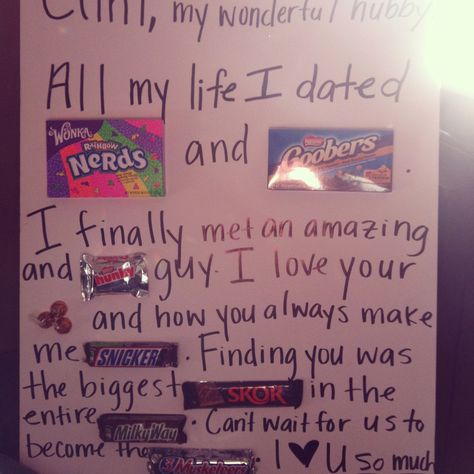 Clint, my wonderful hubby
All my life I dated
WONKA
RAINBOW
NERDS and Nestlé
Goobers .
I finally met an amazing
and Hunk guy. I love your
and how you always make
me SNICKERS . Finding you was
the biggest SKOR in the
entire MilkyWay . Can't wait for us to
become the Musketeers . I ♥ U so much